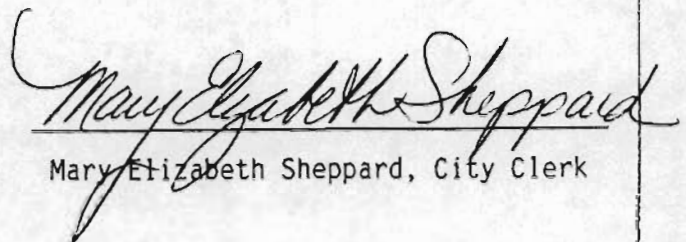 Mary Elizabeth Sheppard
Mary Elizabeth Sheppard, City Clerk